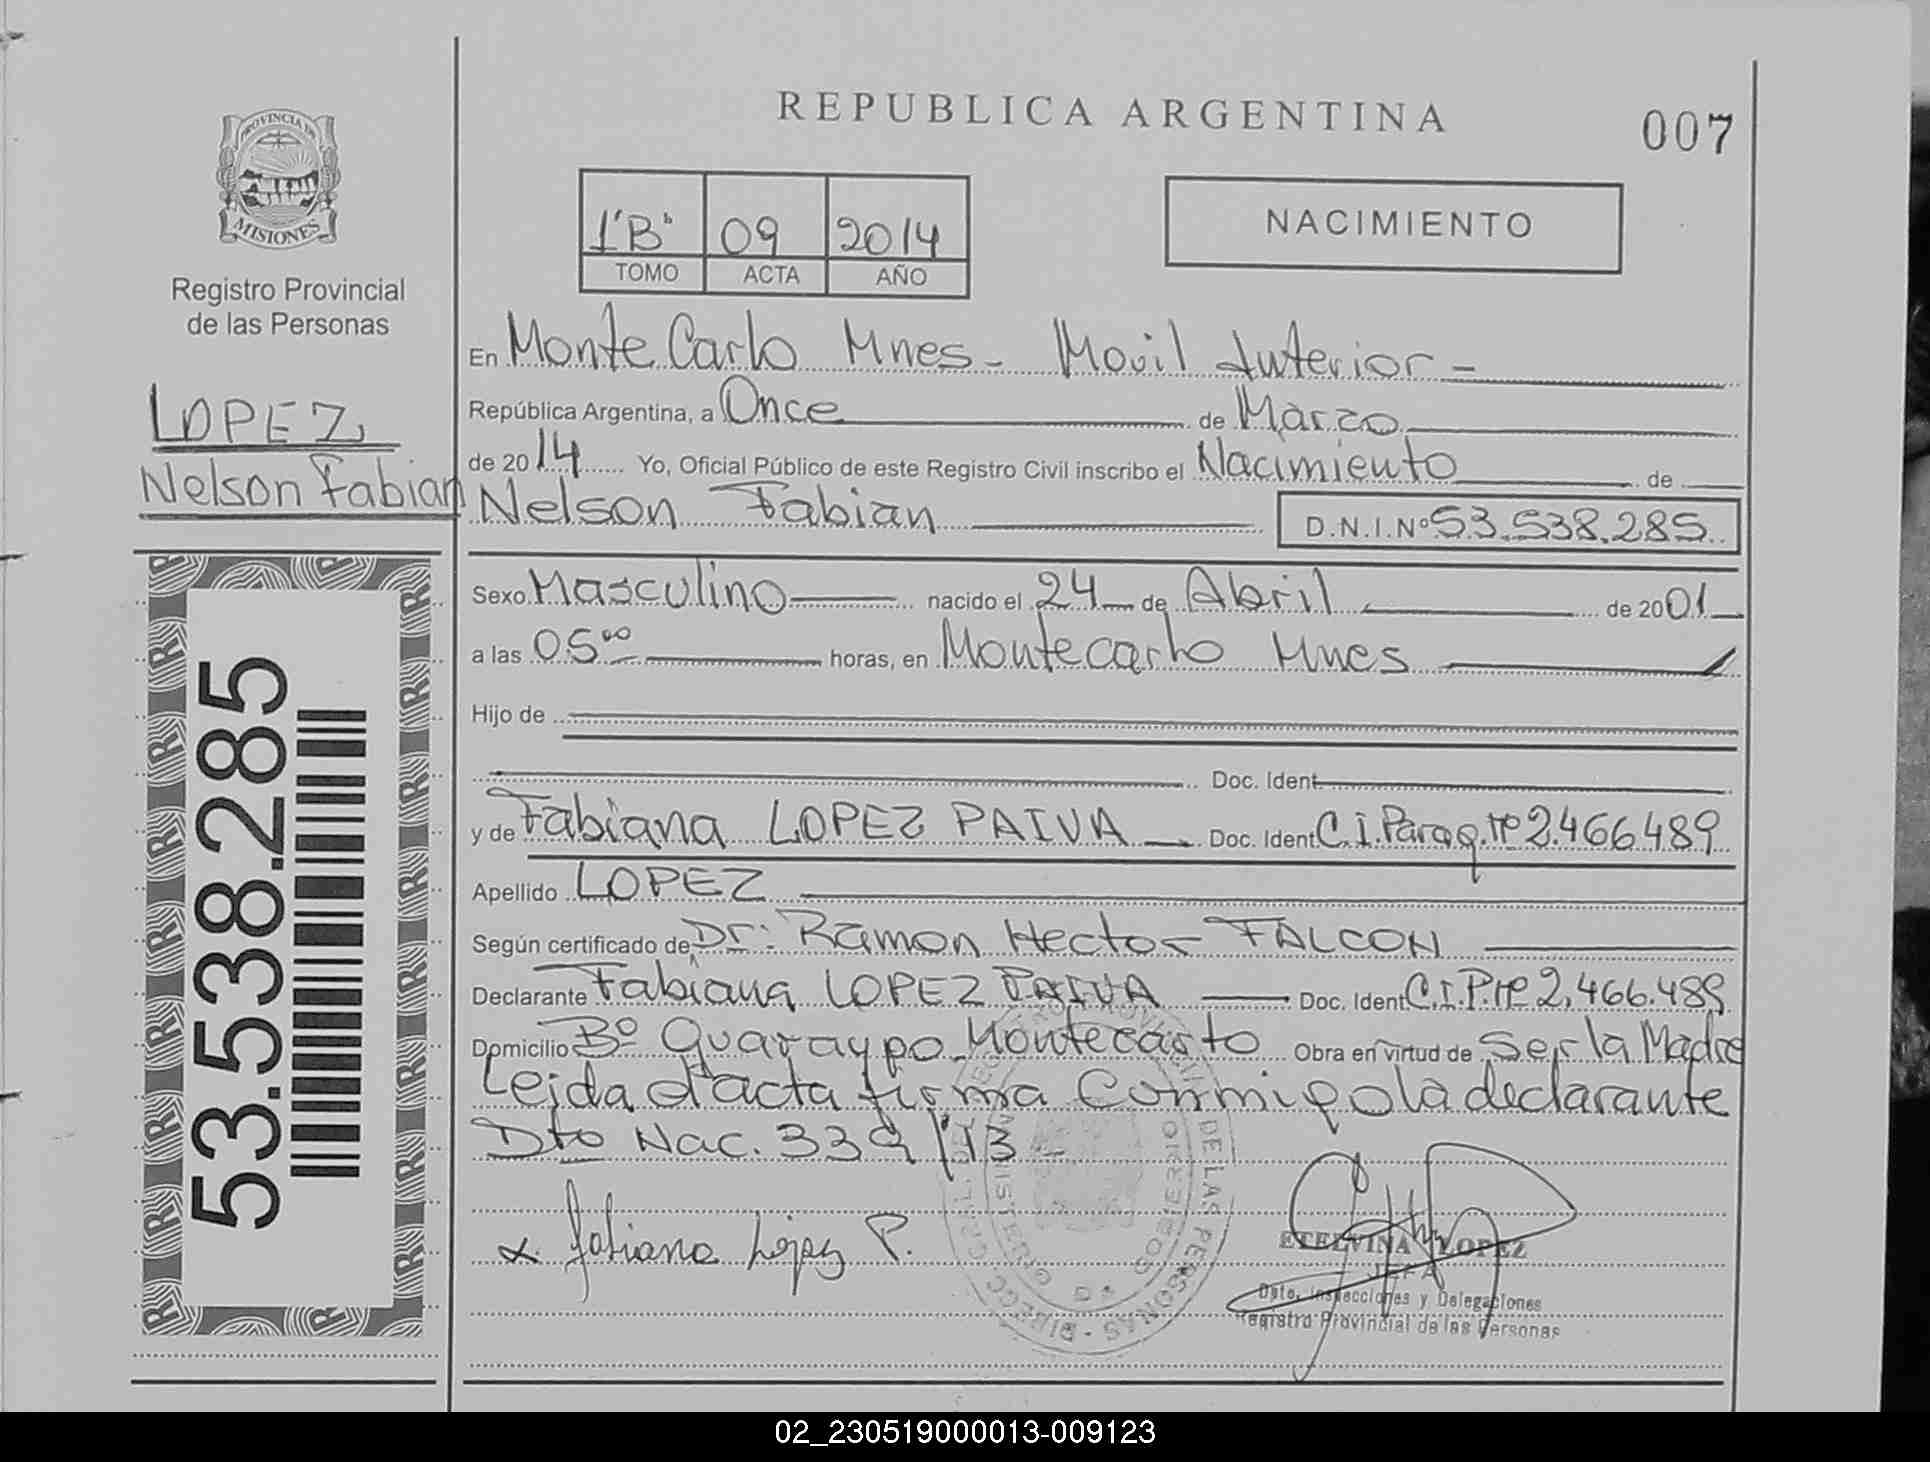 REPUBLICA ARGENTINA
007
PROVINCIA DE
MISIONES
Registro Provincial
de las Personas
LOPEZ
Nelson Fabian
53.538.285
1 "B" 09 2014
TOMO ACTA AÑO
NACIMIENTO
En Monte Carlo Mnes - Movil Interior -
República Argentina, a Once de Marzo
de 2014 Yo, Oficial Público de este Registro Civil inscribo el Nacimiento de
Nelson Fabian D.N.I.Nº 53.538.285
Sexo Masculino nacido el 24 de Abril de 2001
a las 05⁰⁰ horas, en Montecarlo Mnes
Hijo de
Doc. Ident.
y de Fabiana LOPEZ PAIVA Doc. Ident C.I.Parag.Nº 2.466489
Apellido LOPEZ
Según certificado de Dr: Ramon Hector FALCON
Declarante Fabiana LOPEZ PAIVA Doc. Ident C.I.P.Nº 2.466.489
Domicilio Bº Guaraypo Montecarlo Obra en virtud de Ser la Madre
Leida el acta firma Conmigo la declarante
Dto Nac. 339/13
x Fabiana López P.
DE LAS PERSONAS
ETELVINA LOPEZ
JEFA
Dpto. Inspecciones y Delegaciones
Registro Provincial de las Personas
02_230519000013-009123